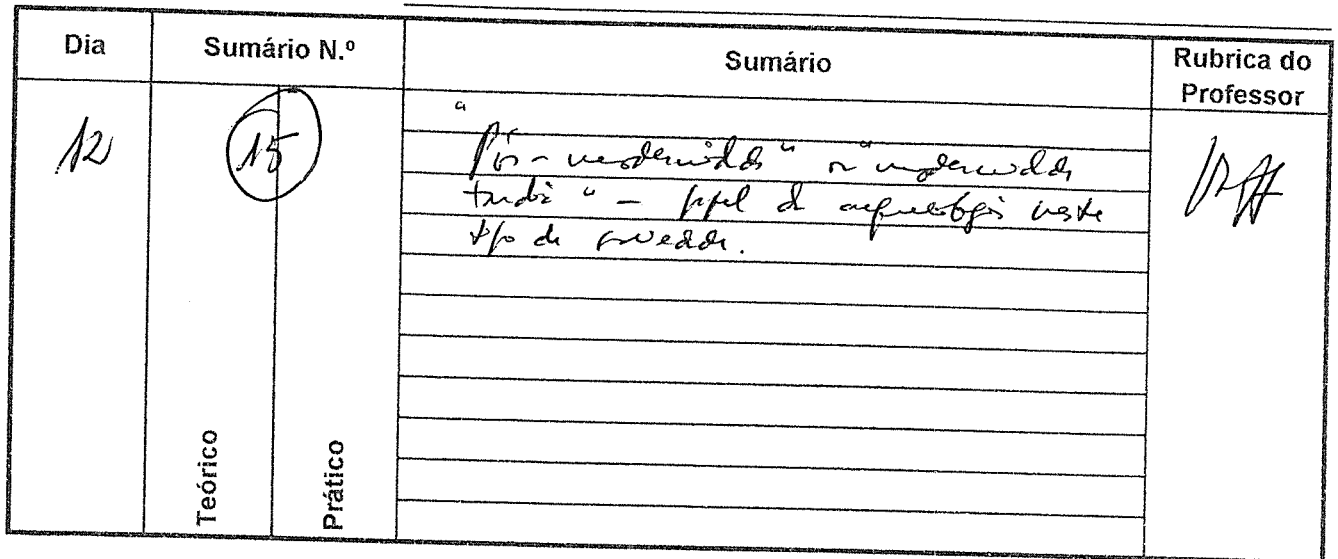 Dia Sumário N.º Sumário Rubrica do Professor
12 15
"Pós-modernidade" ou "modernidade
tardia" – papel da arqueologia neste
tipo de sociedade.
Teórico Prático